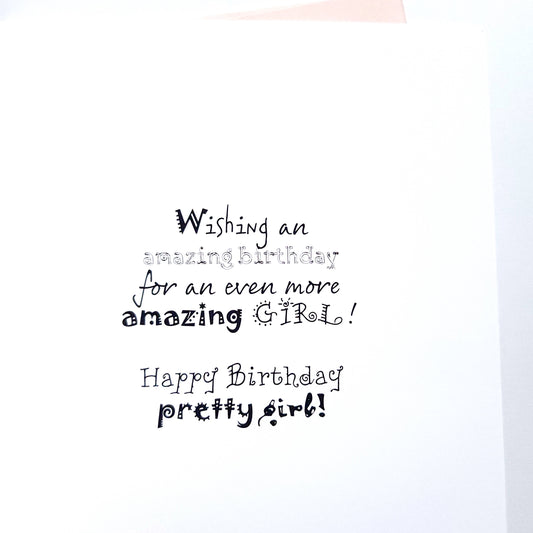 Wishing an
amazing birthday
for an even more
amazing GiRL!
Happy Birthday
pretty girl!